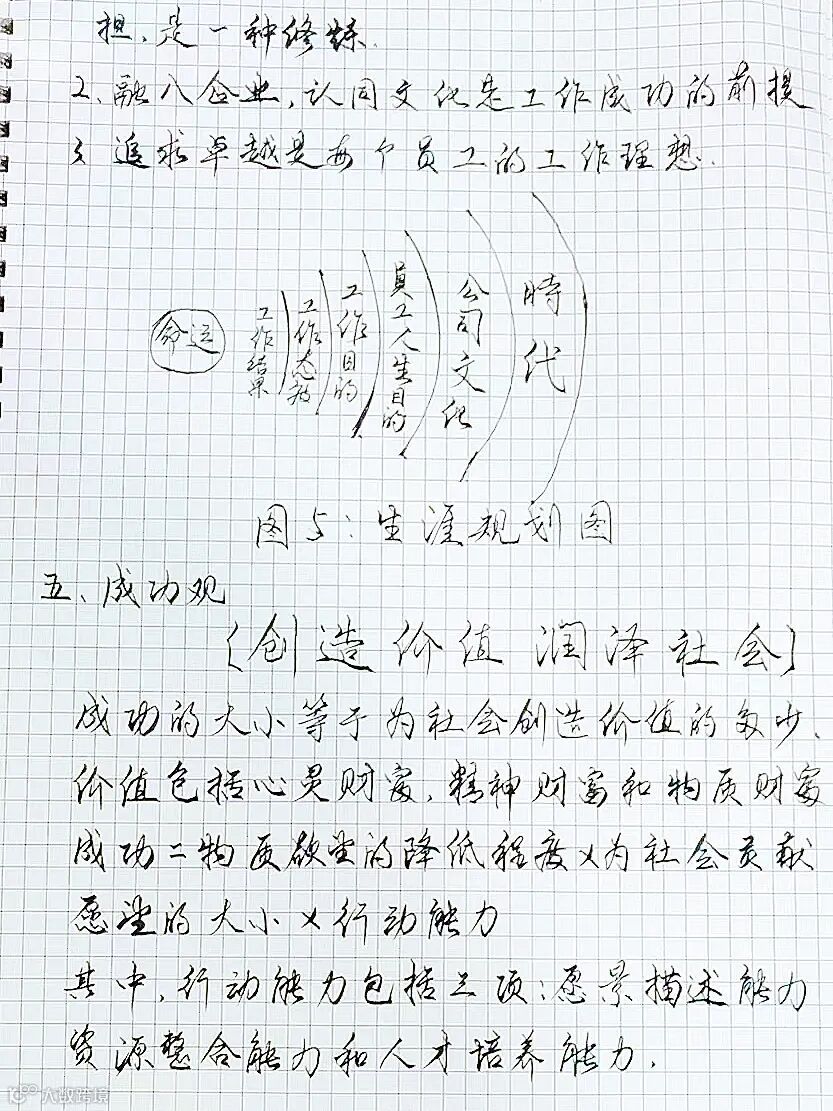 担,是一种修炼.
2、融入企业,认同文化是工作成功的前提
3 追求卓越是每个员工的工作理想.
命运
工作结果
工作态度
工作目的
員工人生目的
公司文化
時代
图5:生涯规划图
五、成功观
〔创造价值 润泽社会〕
成功的大小等于为社会创造价值的多少.
价值包括心灵财富,精神财富和物质财富
成功=物质欲望的降低程度×为社会贡献
愿望的大小×行动能力
其中,行动能力包括三项:愿景描述能力
资源整合能力和人才培养能力.
大数跨境